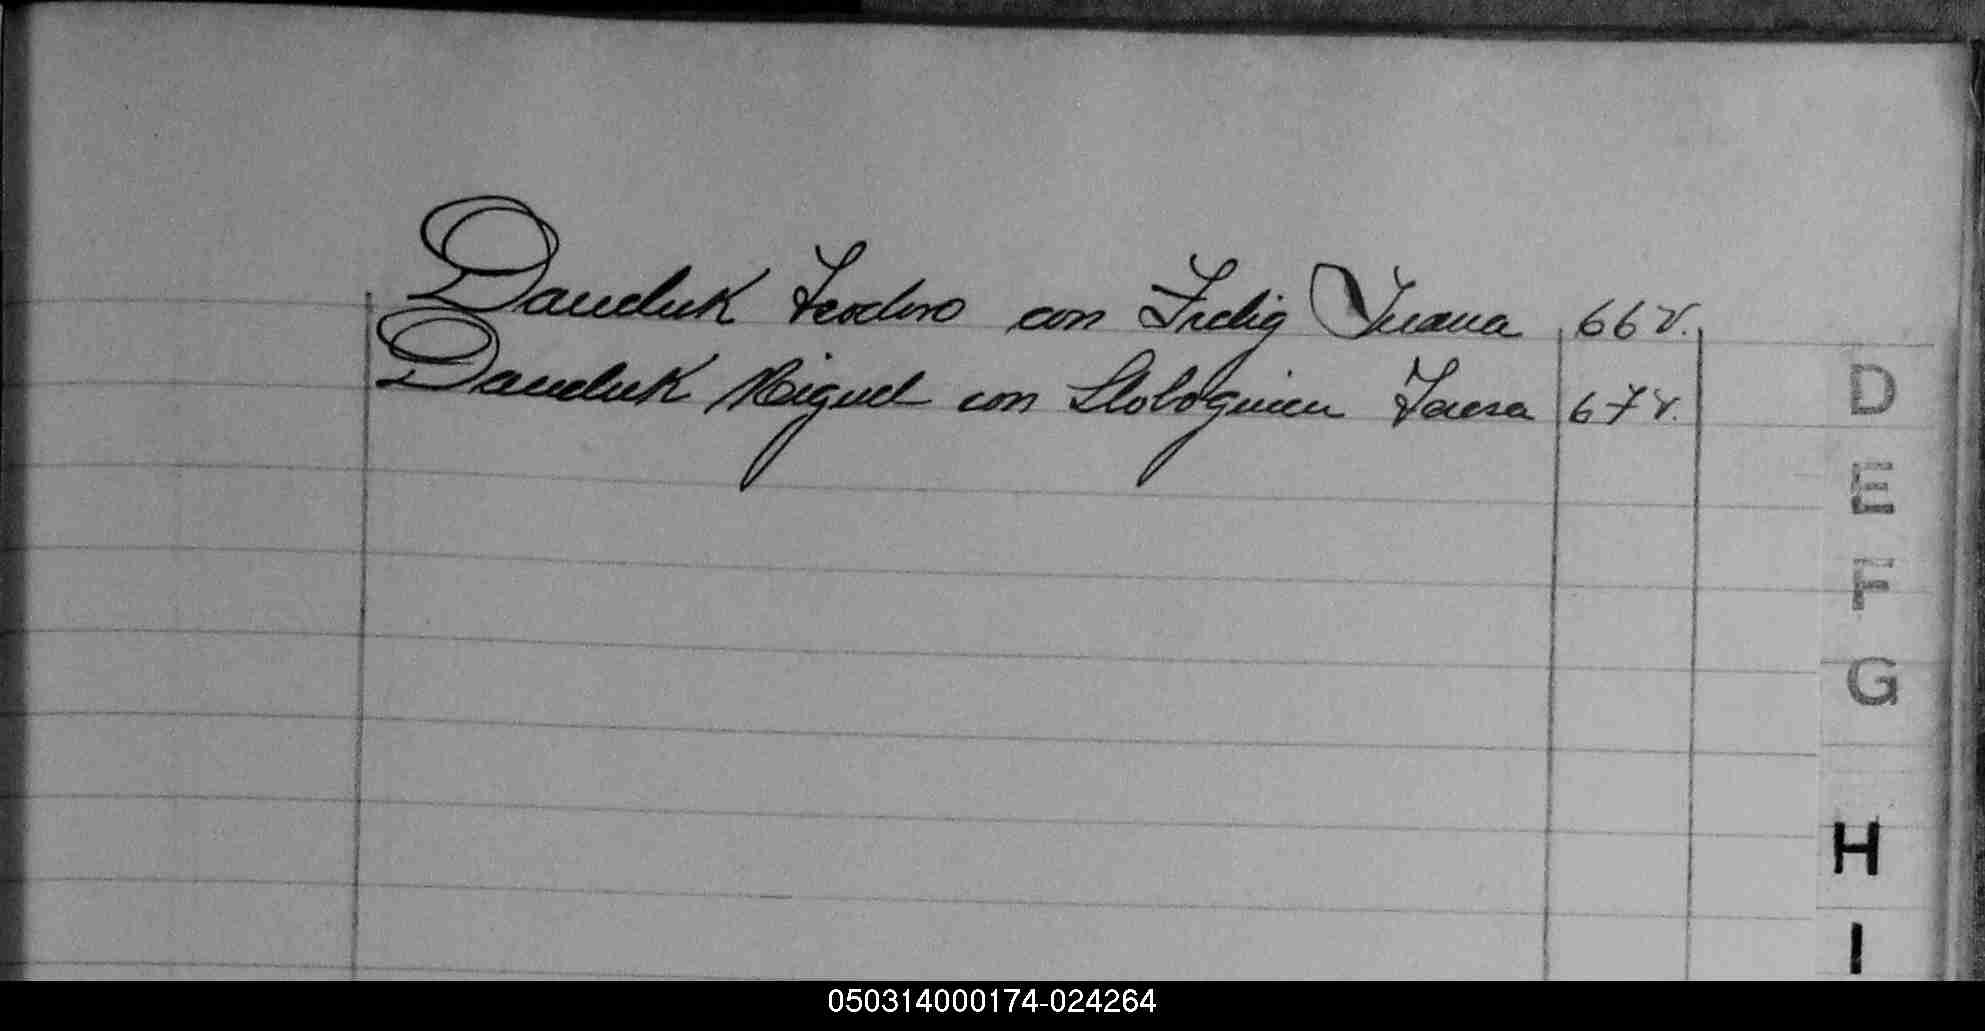 Dauduk Teodoro con Fidig Juana 66 v.
Dauduk Miguel con Teresa 67 v.
D
E
F
G
H
I
050314000174-024264